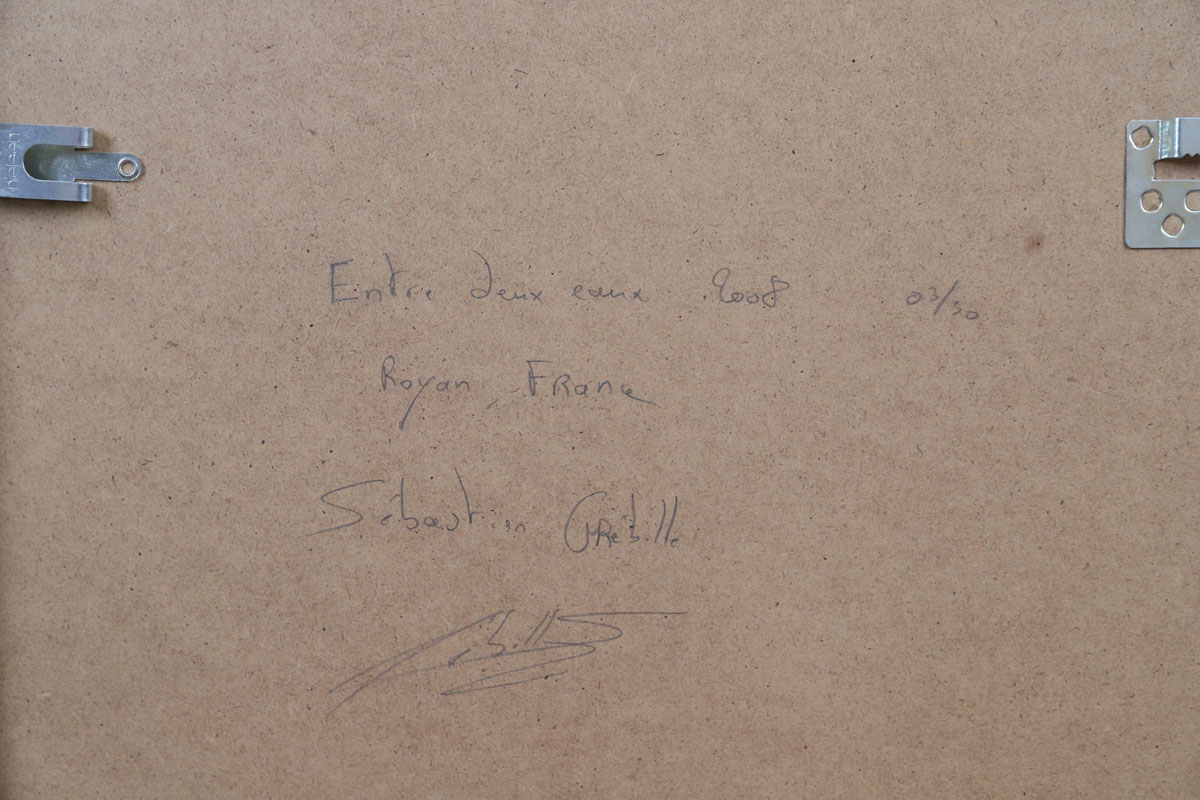 nielsen
Entre deux eaux 2008 03/30
Royan, France
Sébastien Grébille